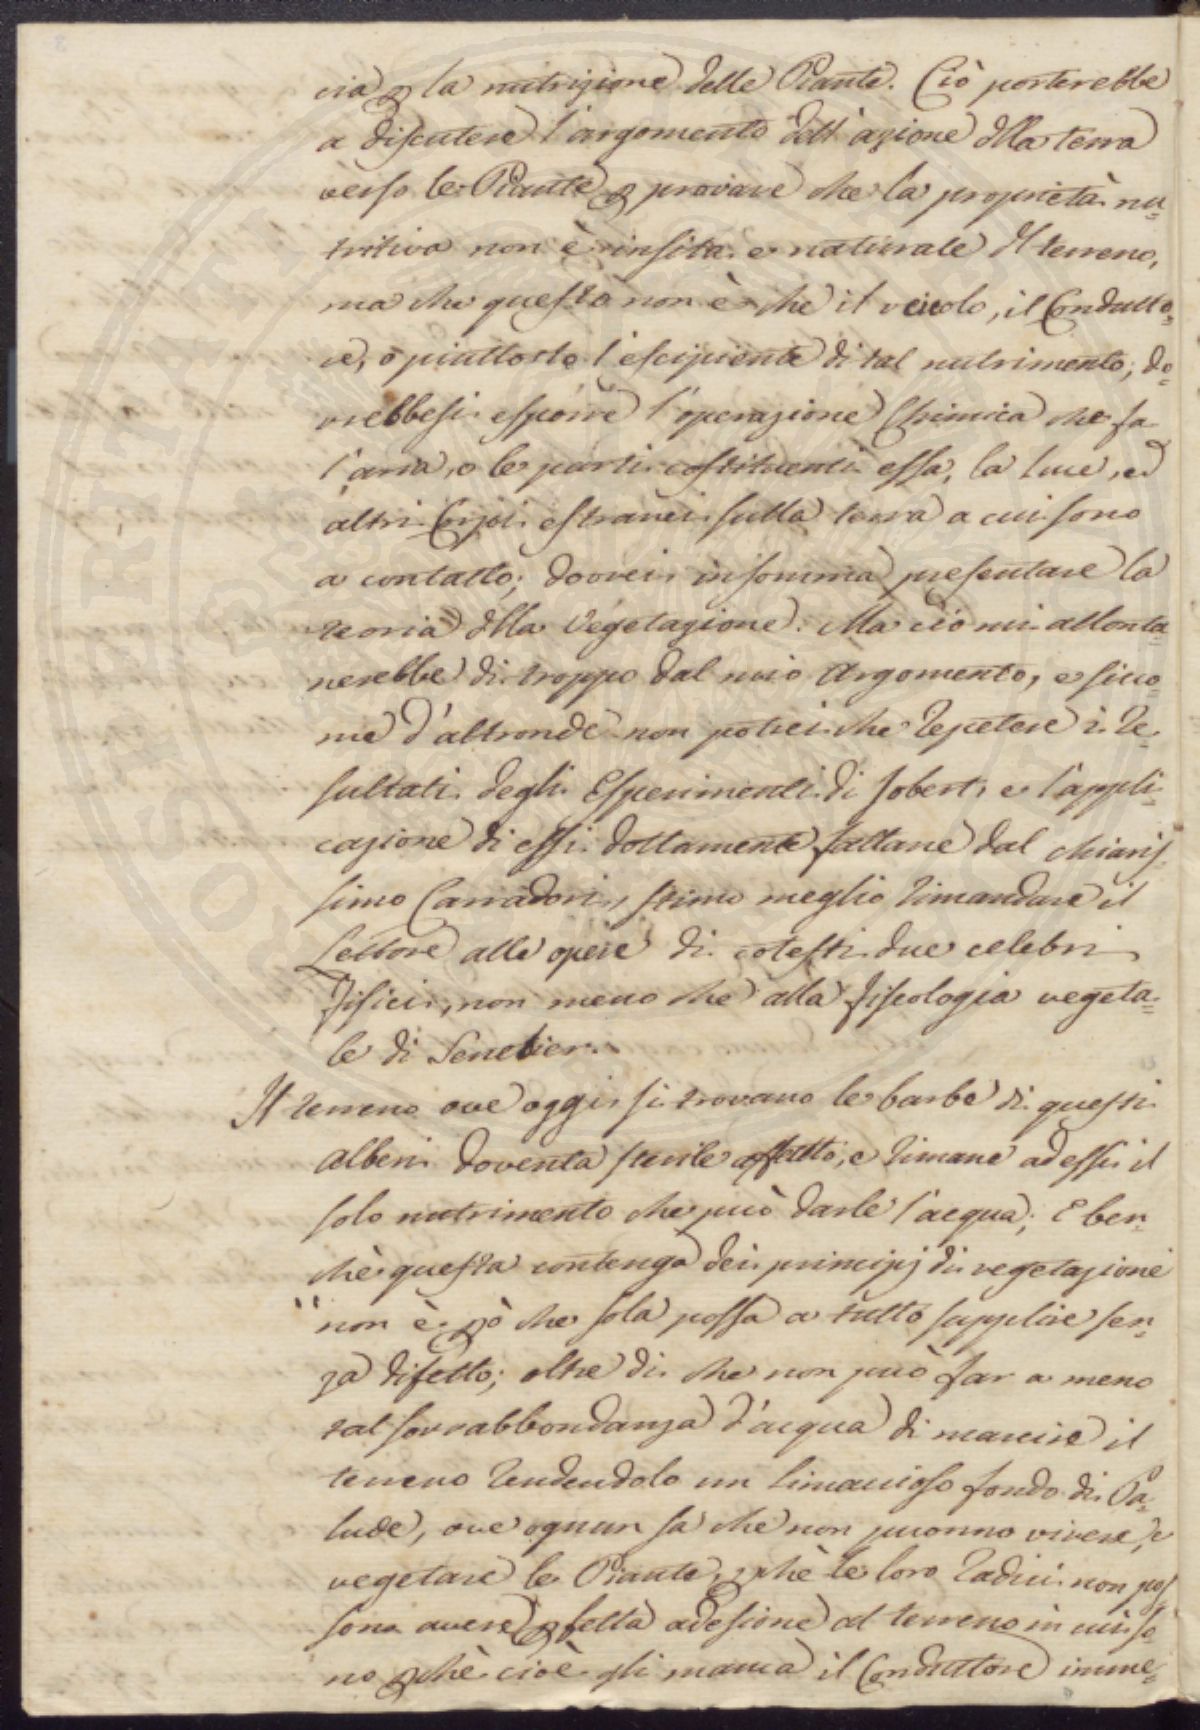 cia p la nutrizione delle Piante. Ciò porterebbe
a discutere l'argomento dell'azione dlla terra
verso le Piante, p provare che la proprietà nu=
tritiva non è insita e naturale dl terreno,
ma che questo non è che il veicolo, il Condutto=
re, o piuttosto l'escipiente di tal nutrimento; do=
vrebbesi esporre l'operazione Chimica che fa
l'aria, o le parti costituenti essa, la luce, ed
altri Corpi estranei sulla terra a cui sono
a contatto; dovrei insomma presentare la
teoria dlla Vegetazione. Ma ciò mi allonta=
nerebbe di troppo dal mio Argomento, e sicco=
me d'altronde non potrei che repetere i re=
sultati degli Esperimenti di Jobert, e l'appli=
cazione di essi dottamente fattane dal chiaris=
simo Carradori, stimo meglio rimandare il
Lettore alle opere di cotesti due celebri
Fisici, non meno che alla fisiologia vegeta=
le di Senebier.
Il terreno ove oggi si trovano le barbe di questi
alberi doventa sterile affatto, e rimane ad essi il
solo nutrimento che può darle l'acqua; E ben=
chè questa contenga dei principj di vegetazione
non è pò che sola possa a tutto supplire sen=
za difetto; oltre di che non può far a meno
tal sovrabbondanza d'acqua di marcire il
terreno rendendolo un limaccioso fondo di Pa=
lude, ove ognun sa che non puonno vivere, e
vegetare le Piante, pchè le loro radici non pos=
sono avere pfetta adesione al terreno in cui so=
no pchè cioè gli manca il Conduttore imme=